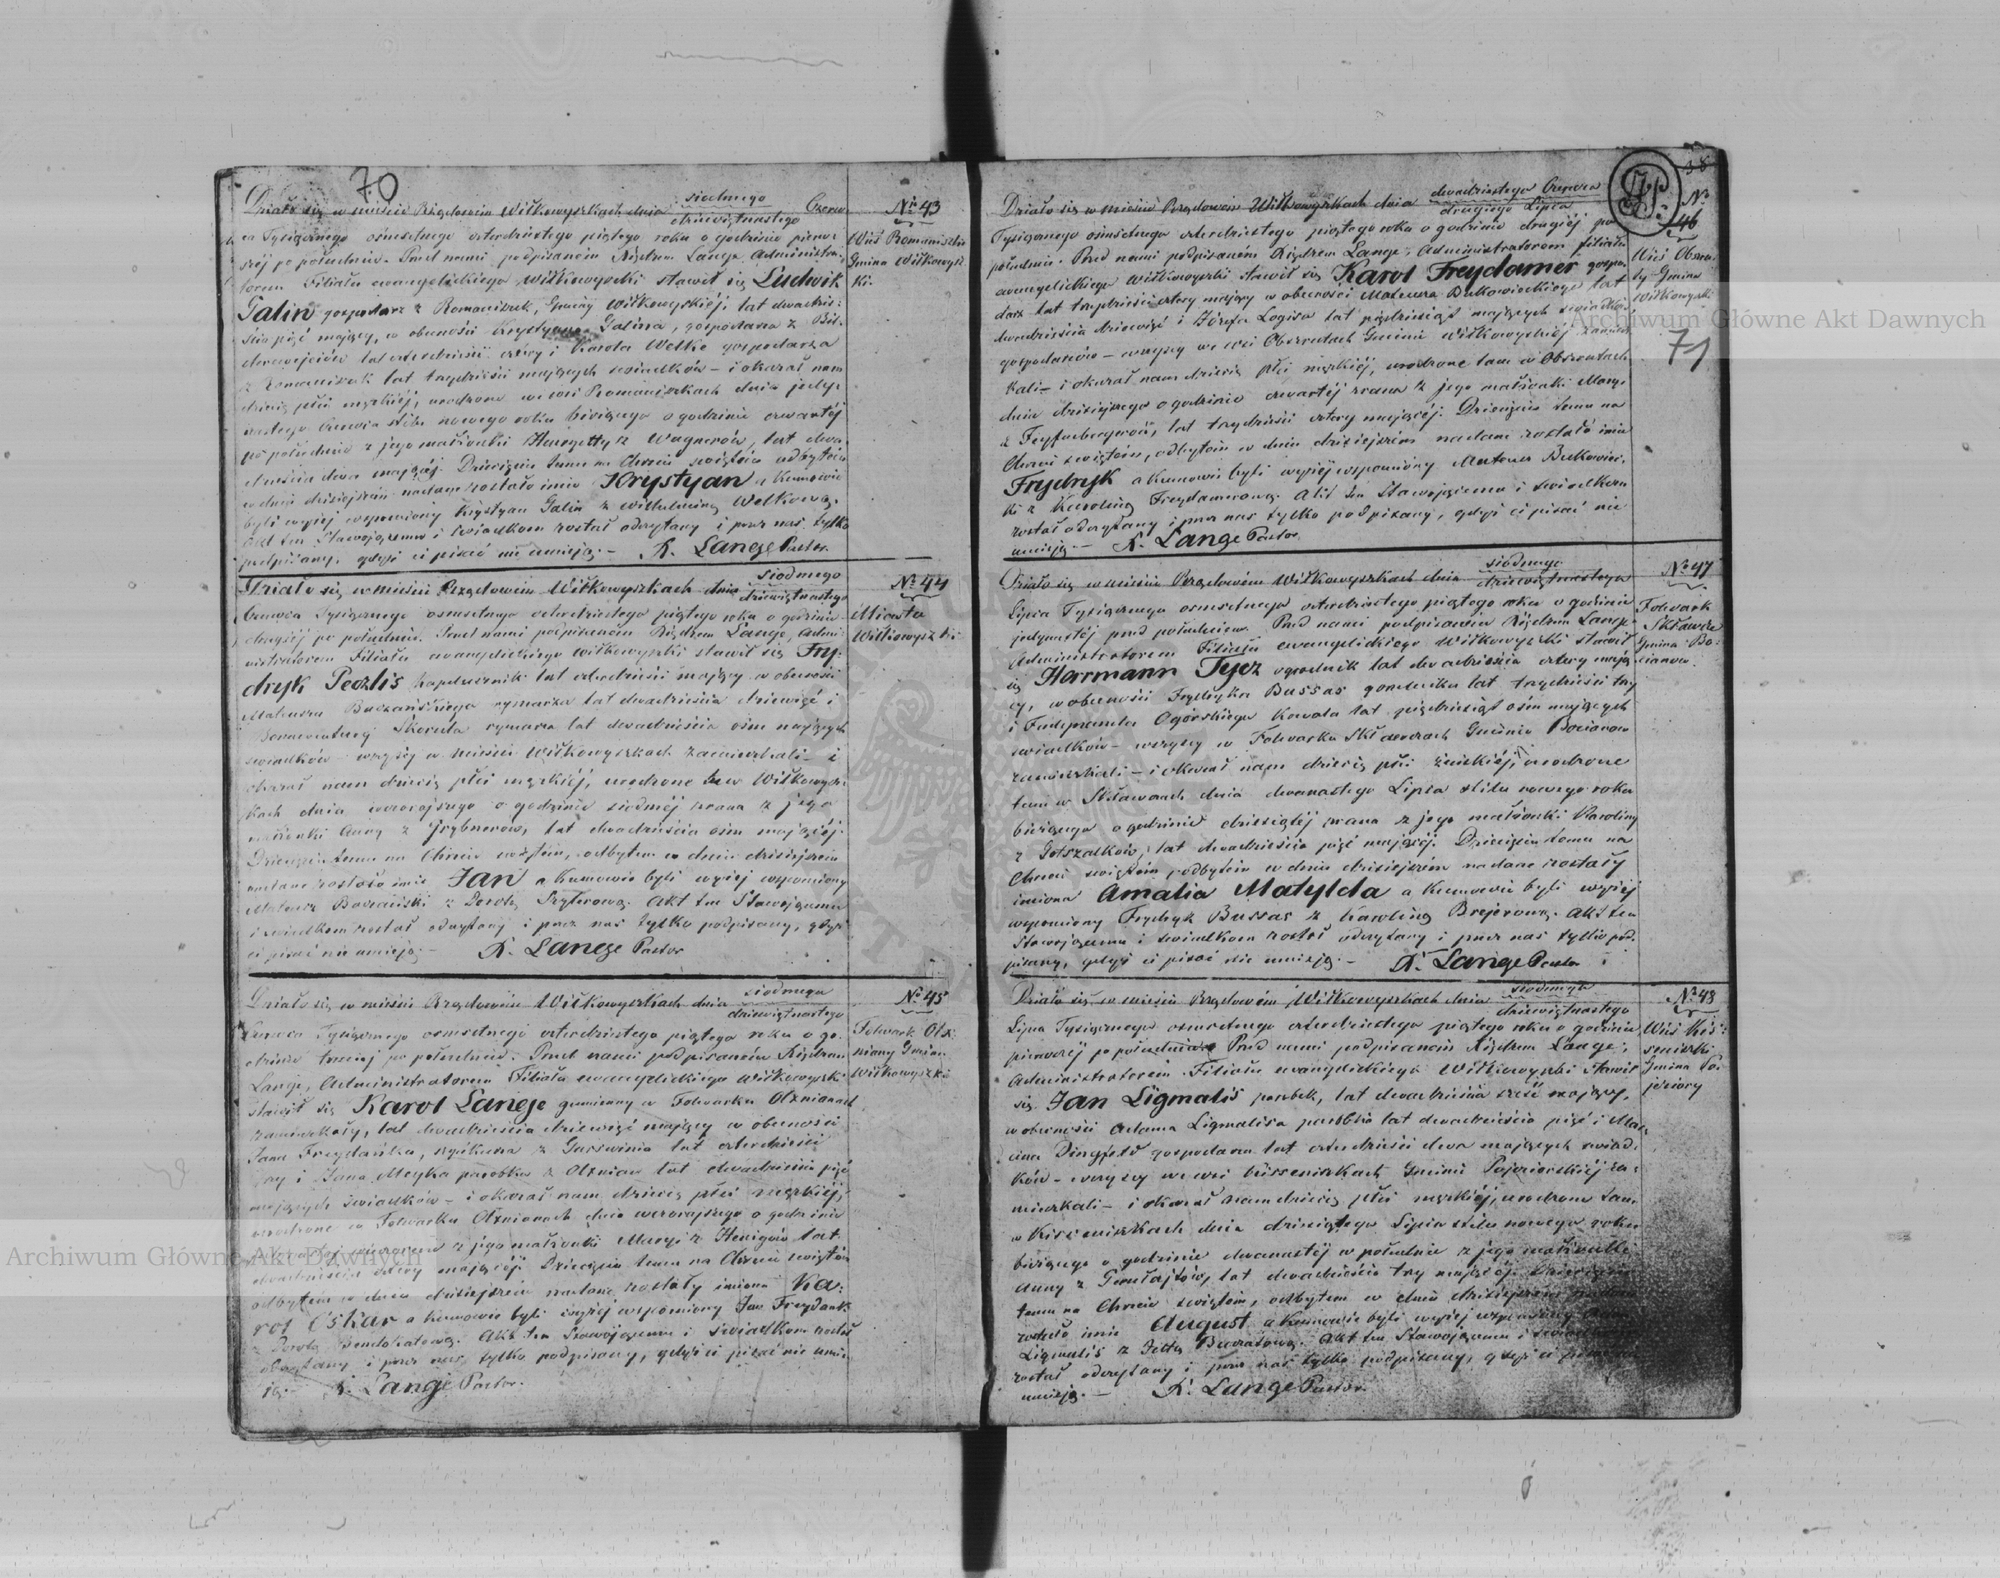 70
Działo się w mieście Rządowem Wiłkowyszkach dnia siodmego / dziewiętnastego Czerw-
ca Tysiącznego ośmsetnego czterdziestego piątego roku o godzinie pierw-
széj po południu. Przed nami podpisanem Xiędzem Lange Administra-
torem Filiału ewangelickiego Wiłkowyszki stawił się Ludwik
Galin gospodarz z Romaniszek, Gminy Wiłkowyskiéj, lat dwadzie-
ścia pięć mający, w obecności Krystyana Galina, gospodarza z
lat czterdzieści cztery i Karola Welke gospodarza
z Romaniszek lat trzydzieści mających świadków – i okazał nam
dziecię płci męzkiéj, urodzone we wsi Romaniszkach dnia jedy-
nastego Czerwca stilu nowego roku bieżącego o godzinie czwartéj
po południu z jego małżonki Henryetty z Wagnerów, lat dwa-
dzieścia dwa mającéj. Dziecięciu temu na Chrzcie świętém odbytém
w dniu dzisiejszém nadane zostało imie Krystyan a Kumowie
byli wyżéj wspomniony Krystyan Galin z Wilhelminą Welkową.
Akt ten Stawającemu i świadkom został odczytany i przez nas tylko
podpisany, gdyż ci pisać nie umieją. – K. Lange Pastor.
№ 43
Wieś Romaniszki
Gmina Wiłkowysz-
ki.
Działo się w mieście Rządowém Wiłkowyszkach dnia siodmego / dziewiętnastego
Czerwca Tysiącznego ośmsetnego czterdziestego piątego roku o godzinie
drugiéj po południu. Przed nami podpisanem Xiędzem Lange, Admi-
nistratorem Filiału ewangelickiego Wiłkowyszki stawił się Fry-
dryk Peczlis kapelusznik lat czterdzieści mający w obecności
Mateusza rymarza lat dwadzieścia dziewięć i
Skoruta rymarza lat dwadzieścia ośm mających
świadków – wszyscy w mieście Wiłkowyszkach zamieszkali – i
okazał nam dziecię płci męzkiéj, urodzone tu w Wiłkowysz-
kach dnia wczorajszego o godzinie siodméj zrana z jego
małżonki Anny z Grybnerów, lat dwadzieścia ośm mającéj.
Dziecięciu temu na Chrzcie świętém, odbytém w dniu dzisiejszém
nadane zostało imie Jan a Kumowie byli wyżéj wspomniony
Mateusz z Dorotą Szylerową. Akt ten Stawającemu
i świadkom został odczytany i przez nas tylko podpisany, gdyż
ci pisać nie umieją. – K. Lange Pastor
№ 44
Miasto
Wiłkowyszki
Działo się w mieście Rządowém Wiłkowyszkach dnia siodmego / dziewiętnastego
Czerwca Tysiącznego ośmsetnego czterdziestego piątego roku o go-
dzinie trzeciéj po południu. Przed nami podpisaném Xiędzem
Lange, Administratorem Filiału ewangelickiego Wiłkowyszki
stawił się Karol Lange gumienny w Folwarku Olxnianach
zamieszkały, lat dwadzieścia dziewięć mający w obecności
Jana Freydanka, z lat czterdzieści
i Jana Meyka parobka z Olxnian lat dwadzieścia pięć
mających świadków – i okazał nam dziecię płci męzkiéj,
urodzone w Folwarku Olxnianach dnia wczorajszego o godzinie
wieczorem z jego małżonki Maryi z Henigów lat
dwadzieścia cztery mającéj. Dziecięciu temu na Chrzcie świętém
odbytém w dniu dzisiejszém nadane zostały imiona Ka-
rol Oskar a Kumowie byli wyżéj wspomniony Jan Freydank
z Dorotą. Akt ten Stawającemu i świadkom został
odczytany i przez nas tylko podpisany, gdyż ci pisać nie umie-
ją. – K. Lange Pastor.
№ 45
Folwark Olx-
niany Gmina
Wiłkowyszki
38
71
Działo się w mieście Rządowém Wiłkowyszkach dnia dwudziestego Czerwca / drugiego Lipca
Tysiącznego ośmsetnego czterdziestego piątego roku o godzinie drugiéj po
południu. Przed nami podpisaném Xiędzem Lange, Administratorem Filiału
ewangelickiego Wiłkowyszki stawił się Karol Freydamer gospo-
darz lat trzydzieści cztery mający w obecności Mateusza Butkowieckiego lat
dwadzieścia dziewięć i Józefa Logisa lat pięćdziesiąt mających świadków
gospodarzów – wszyscy we wsi Obszrutach Gminie Wiłkowyskiéj zamiesz-
kali – i okazał nam dziecię płci męzkiéj, urodzone tam w Obszrutach
dnia dzisiejszego o godzinie czwartéj zrana z jego małżonki Maryi
z lat trzydzieści cztery mającéj. Dziecięciu temu na
Chrzcie świętém, odbytém w dniu dzisiejszém nadane zostało imie
Frydryk a Kumowie byli wyżéj wspomniony Mateusz Butkowiec-
ki z Karoliną Freydamerową. Akt ten Stawającemu i świadkom
został odczytany i przez nas tylko podpisany, gdyż ci pisać nie
umieją. – K. Lange Pastor
№
46
Wieś Obszru-
ty Gmina
Wiłkowyszki
Działo się w mieście Rządowém Wiłkowyszkach dnia siodmego / dziewiętnastego
Lipca Tysiącznego ośmsetnego czterdziestego piątego roku o godzinie
jedynastéj przed południem. Przed nami podpisaném Xiędzem Lange
Administratorem Filiału ewangelickiego Wiłkowyszki stawił
się Harmann Tycz ogrodnik lat dwadzieścia cztery mają-
cy, w obecności Frydryka Bussas lat trzydzieści trzy
i Ferdynanda Ogórskiego Kowala lat pięćdziesiąt ośm mających
świadków – wszyscy w Folwarku Skławdzach Gminie Bocianow
zamieszkali – i okazał nam dziecię płci żeńskiéj, urodzone
tam w dnia dwunastego Lipca stilu nowego roku
bieżącego o godzinie dziesiątéj zrana z jego małżonki Karoliny
z Gotszalków, lat dwadzieścia pięć mającéj. Dziecięciu temu na
Chrzcie świętém odbytém w dniu dzisiejszém nadane zostały
imiona Amalia Matylda a Kumowie byli wyżéj
wspomniony Frydryk Bussas z Karoliną Brejerową. Akt ten
Stawającemu i świadkom został odczytany i przez nas tylko pod-
pisany, gdyż ci pisać nie umieją. – K. Lange Pastor
№ 47
Folwark
Skławdze
Gmina Bo-
cianow.
Działo się w mieście Rządowém Wiłkowyszkach dnia siodmego / dziewiętnastego
Lipca Tysiącznego ośmsetnego czterdziestego piątego roku o godzinie
pierwszéj po południu. Przed nami podpisaném Xiędzem Lange,
Administratorem Filiału ewangelickiego Wiłkowyszki stawił
się Jan Ligmalis parobek, lat dwadzieścia sześć mający,
w obecności Adama Ligmalisa parobka lat dwadzieścia pięć i Mar-
cina Dingfeld gospodarza lat czterdzieści dwa mających świad-
ków – wszyscy we wsi Kisseniszkach Gminie Pojeziorskiéj za-
mieszkali – i okazał nam dziecię płci męzkiéj, urodzone tam
w Kisseniszkach dnia dziesiątego Lipca stilu nowego roku
bieżącego o godzinie dwunastéj w południe z jego małżonki
Anny z lat dwadzieścia trzy mającéj. Dziecięciu
temu na Chrzcie świętém, odbytém w dniu dzisiejszém nadane
zostało imie August a Kumowie byli wyżéj wspomniony Adam
Ligmalis z Jettą. Akt ten Stawającemu i świadkom
został odczytany i przez nas tylko podpisany, gdyż ci pisać nie
umieją. – K. Lange Pastor.
№ 48
Wieś Kis-
seniszki
Gmina Po-
jeziory
Archiwum Główne Akt Dawnych
Archiwum Główne Akt Dawnych